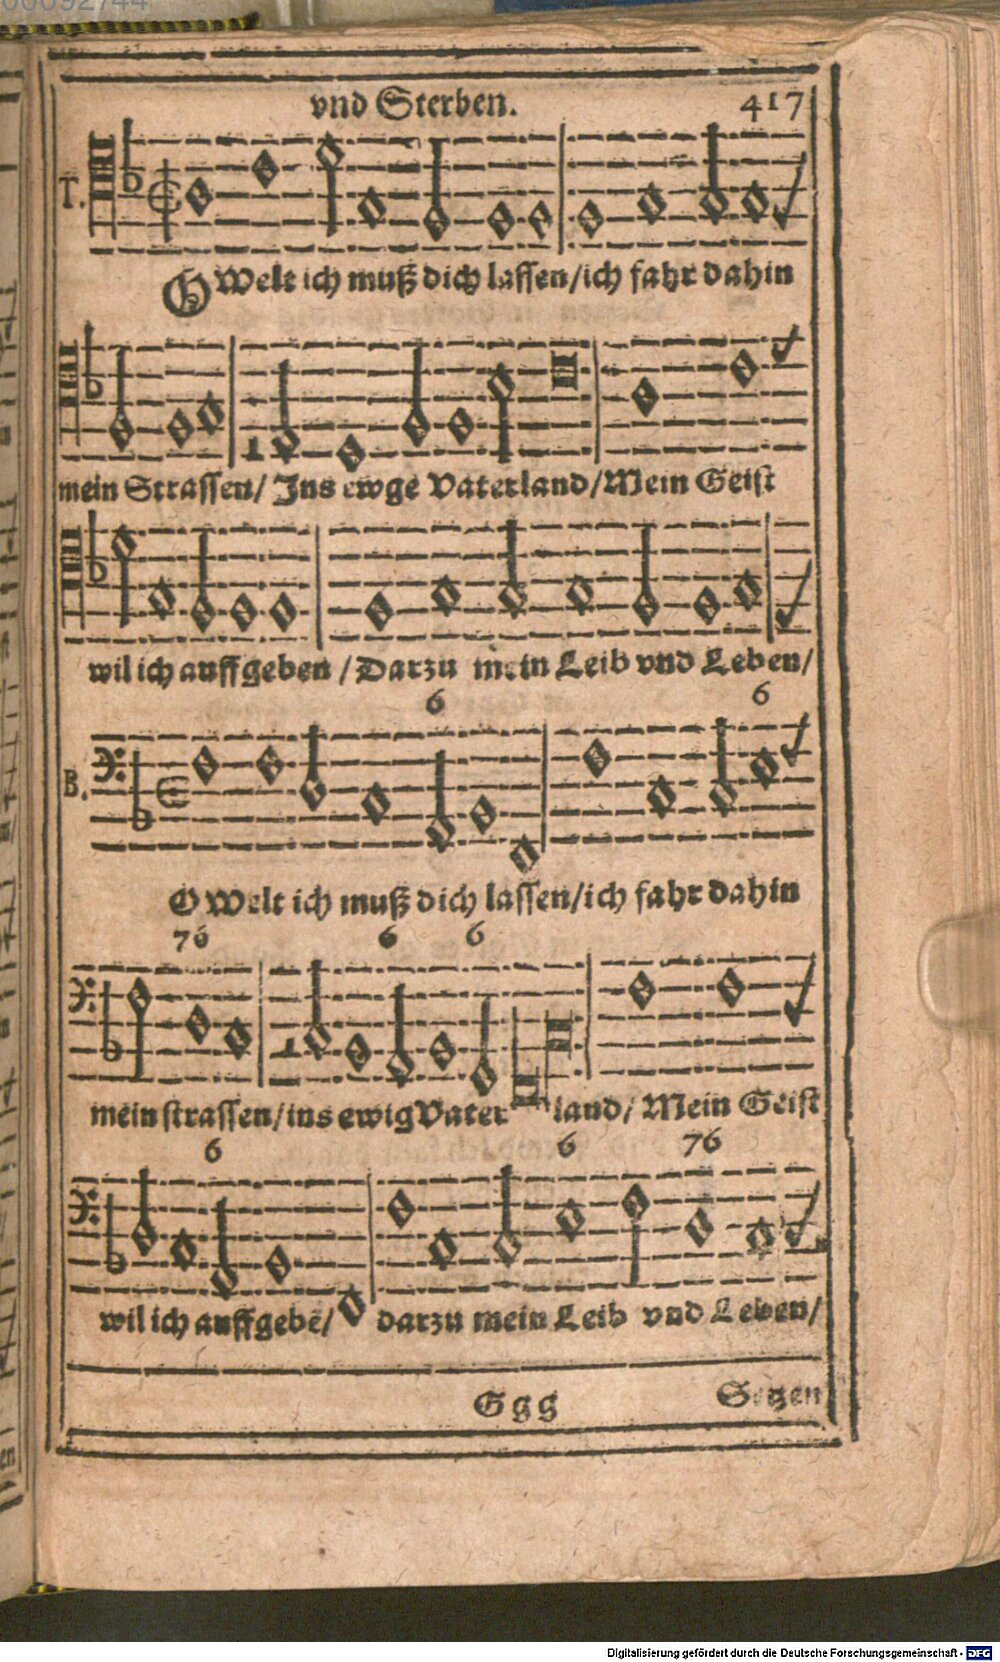 00092744
vnd Sterben. 417
T.
O Welt ich muß dich lassen/ich fahr dahin
mein Strassen/ Ins ewge Vaterland/Mein Geist
wil ich auffgeben /Darzu mein Leib vnd Leben/
6 6
B.
O Welt ich muß dich lassen/ich fahr dahin
76 6 6
mein strassen/ins ewig Vater land/ Mein Geist
6 6 76
wil ich auffgebē/ darzu mein Leib vnd Leben/
Ggg Setzen
Digitalisierung gefördert durch die Deutsche Forschungsgemeinschaft - DFG